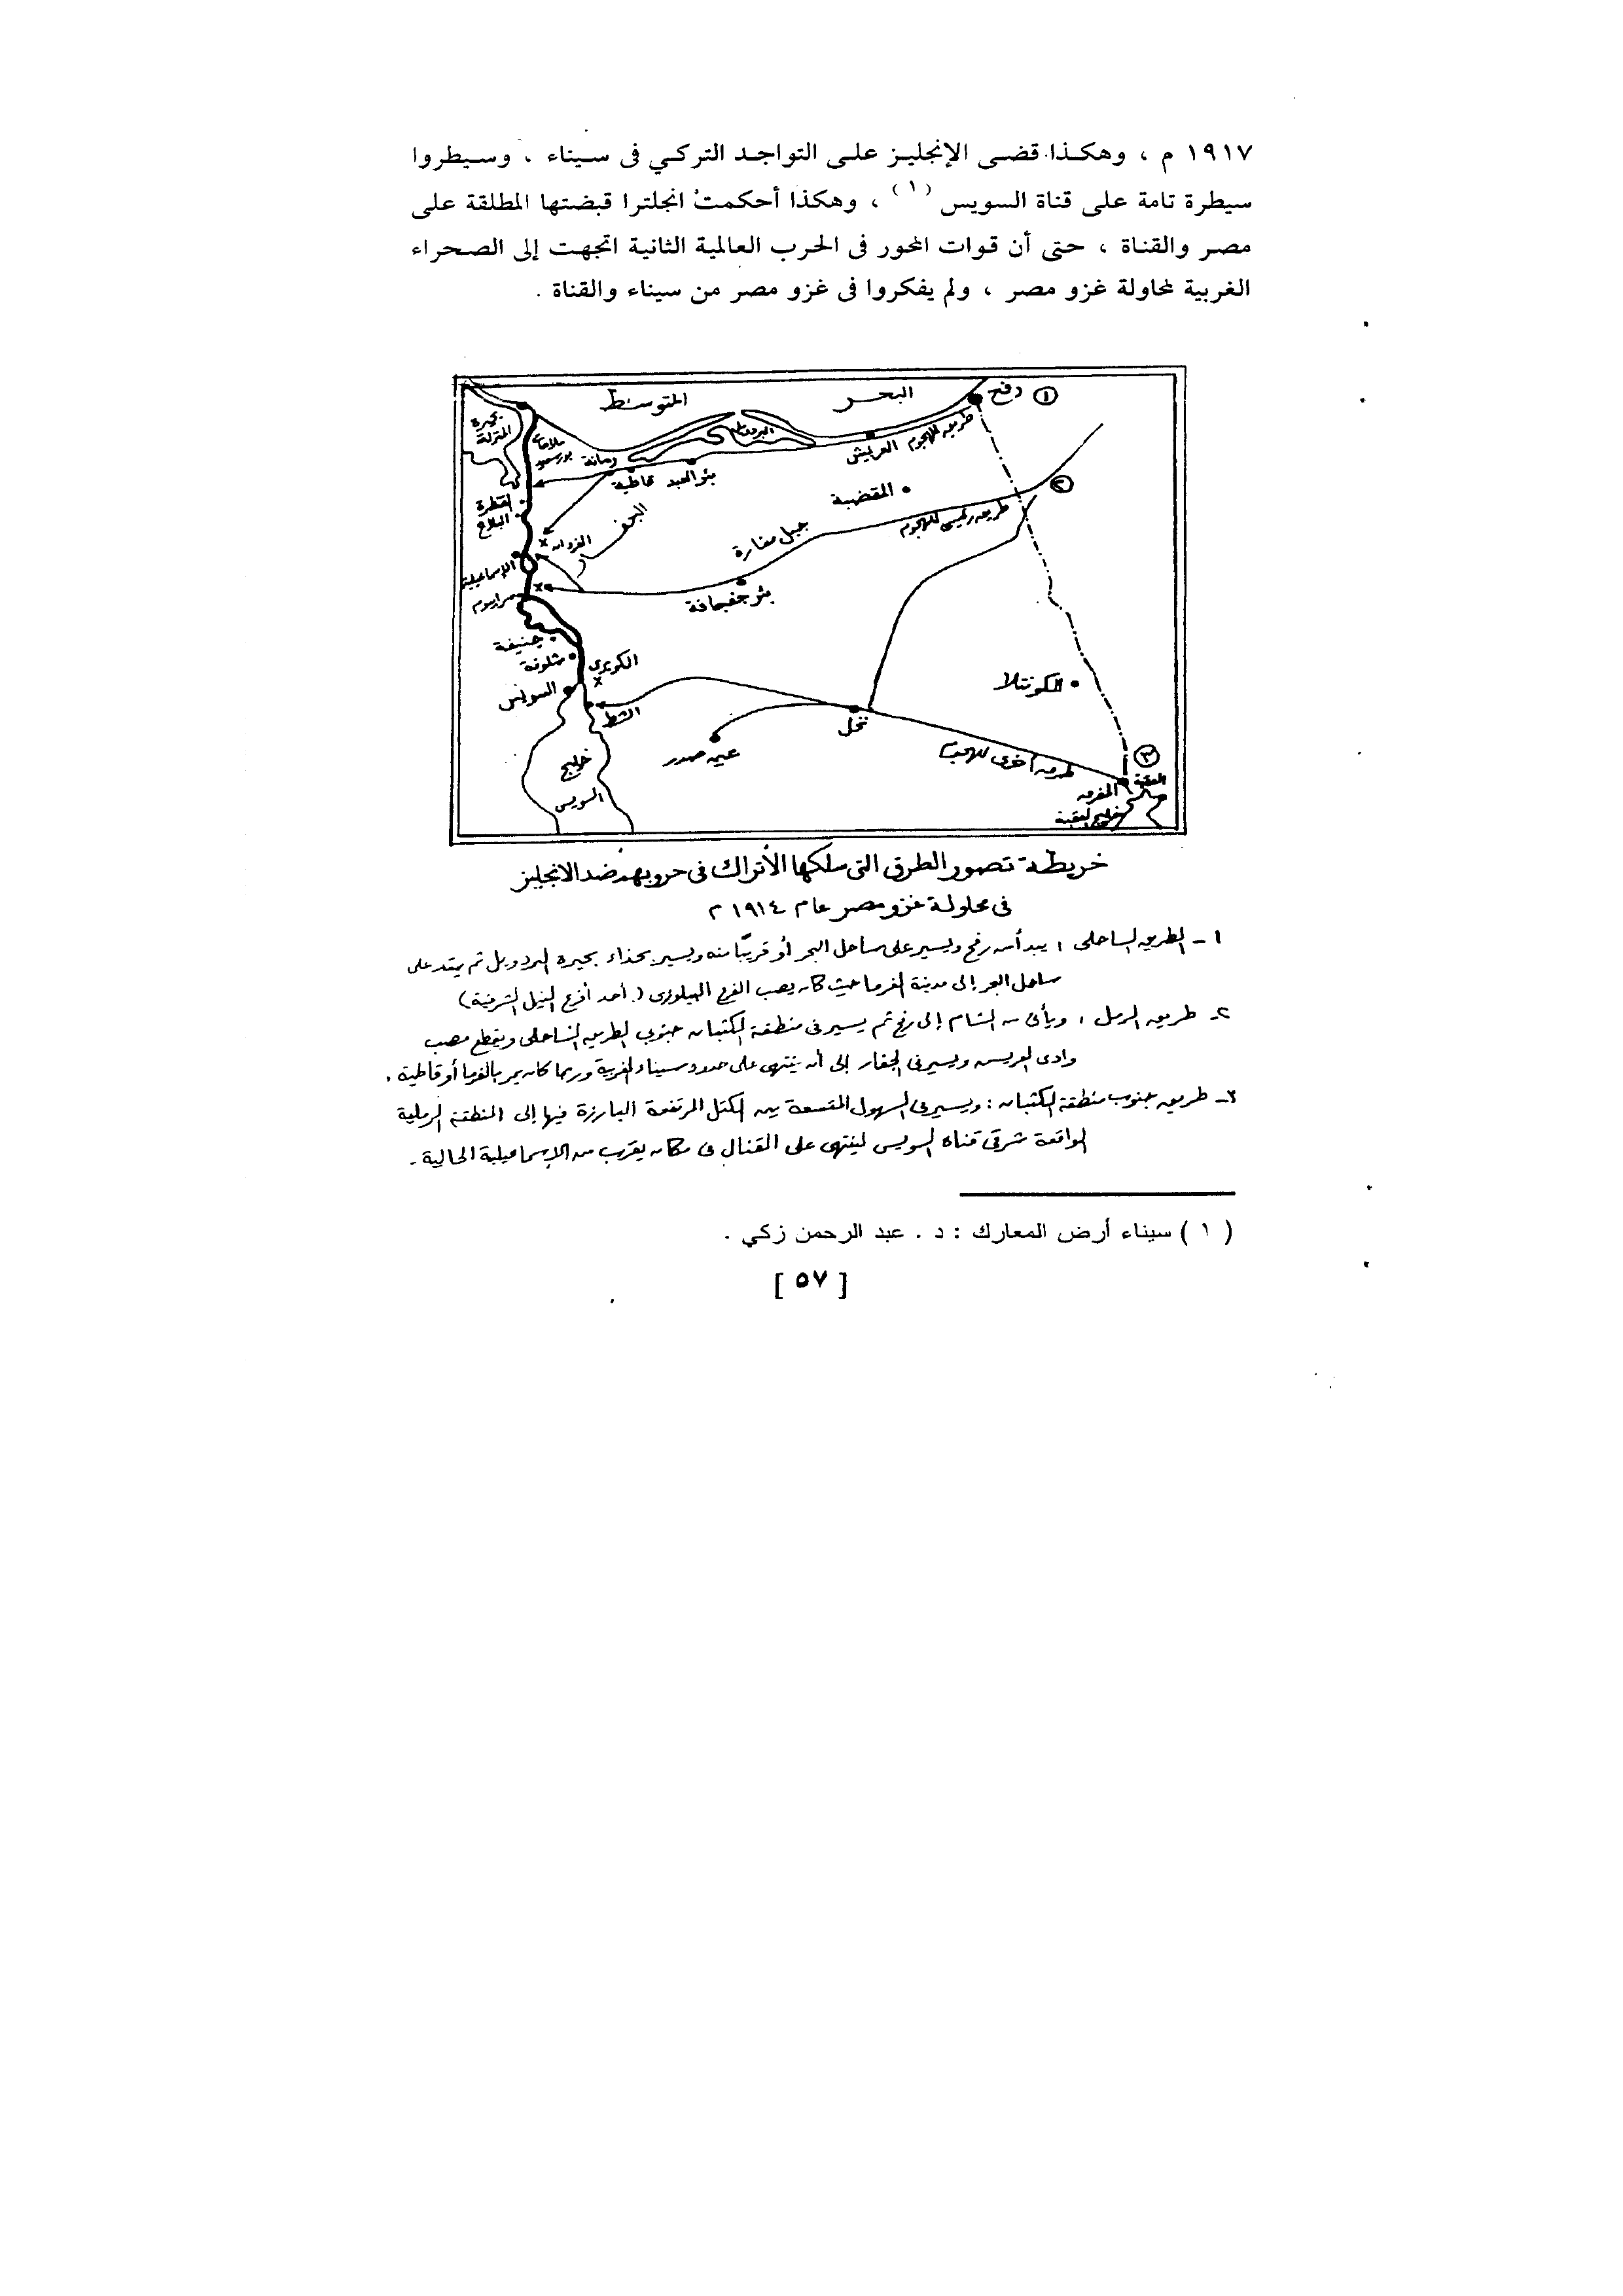 ١٩١٧ م ، وهكذا قضى الإنجليز على التواجد التركي فى سيناء ، وسيطروا
سيطرة تامة على قناة السويس (١) ، وهكذا أحكمت انجلترا قبضتها المطلقة على
مصر والقناة ، حتى أن قوات المحور فى الحرب العالمية الثانية اتجهت إلى الصحراء
الغربية لمحاولة غزو مصر ، ولم يفكروا فى غزو مصر من سيناء والقناة .
رفح ①
البحر
المتوسط
بحيرة
المنزلة
البردويل
طريق للهجوم
العريش
رمانة
بئر العبد
قاطية
القنطرة
البلاح
المقضبة
②
طريق رئيسى للهجوم
جبل مغارة
الفردان
الإسماعيلية
سرابيوم
بئر جفجافة
جنيفة
شلوفة
الكوبرى
السويس
الشط
الكونتلا
نخل
عين صدر
③
العقبة
المفرق
خليج العقبة
خليج
السويس
خريطة تصور الطرق التى سلكها الأتراك فى حروبهم ضد الانجليز
فى محاولة غزو مصر عام ١٩١٤ م
١ - الطريق الساحلى : يبدأ من رفح ويسير على ساحل البحر أو قريبًا منه ويسير بحذاء بحيرة البردويل ثم يمتد على
ساحل البحر إلى مدينة الفرما حيث كان يصب الفرع البيلوزى ( أحد أفرع النيل الشرقية )
٢ - طريق الرمل : ويأتى من الشام إلى رفح ثم يسير فى منطقة الكثبان جنوب الطريق الساحلى ويقطع مصب
وادى العريش ويسير فى الجفار إلى أن ينتهى على حدود سيناء الغربية وربما كان يمر بالفرما أو قاطية .
٣ - طريق جنوب منطقة الكثبان : ويسير فى السهول المتسعة بين الكتل المرتفعة البارزة فيها إلى المنطقة الرملية
الواقعة شرقى قناة السويس لينتهى على القنال فى مكان يقرب من الإسماعيلية الحالية .
( ١ ) سيناء أرض المعارك : د . عبد الرحمن زكي .
[ ٥٧ ]